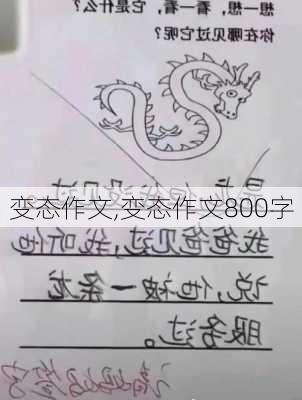 想一想，看一看，它是什么？
你在哪见过它呢？
变态作文,变态作文800字
我爸爸见过，我听他
说，他被一条龙
服务过。